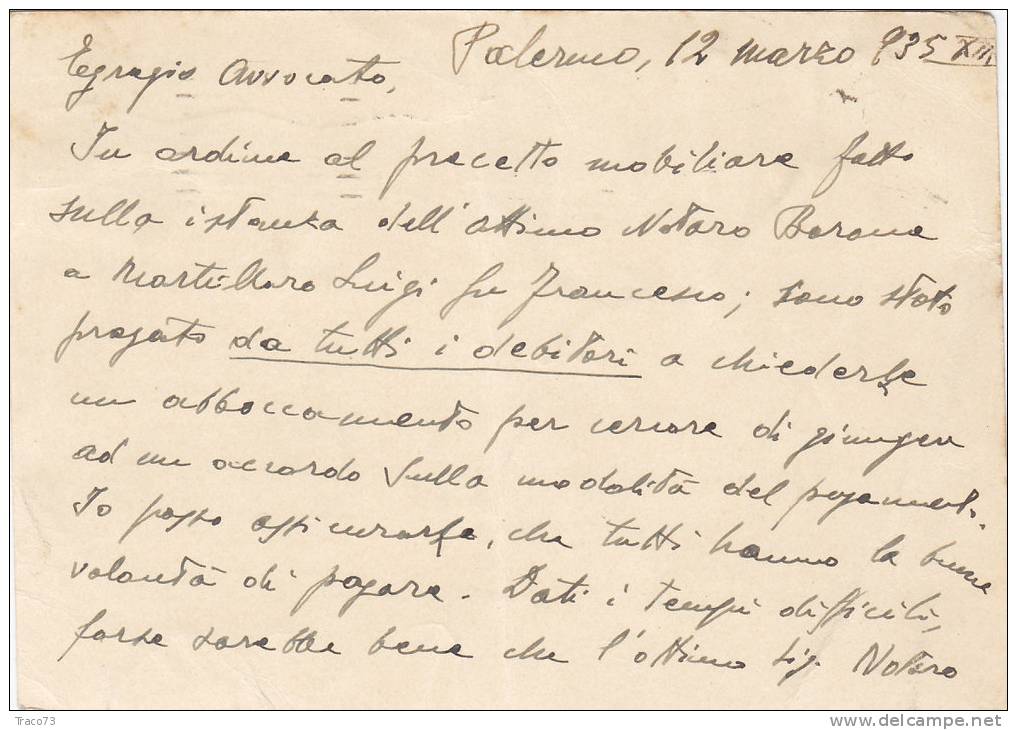 Palermo, 12 marzo 935 XIII
Egregio Avvocato,
In ordine al precetto mobiliare fatto
sulla istanza dell'ottimo Notaro Barone
a Martillaro Luigi fu Francesco; sono stato
pregato da tutti i debitori a chiederle
un abboccamento per cercare di giungere
ad un accordo sulla modalità del pagamento.
Io posso assicurarle, che tutti hanno la buona
volontà di pagare. Dati i tempi difficili,
forse sarebbe bene che l'ottimo Sig. Notaro
Traco73
www.delcampe.net